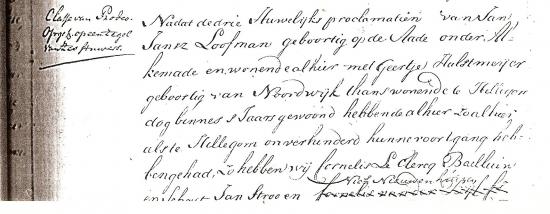 Classe van Prodeo
Opgez. op een zegel
van zes stuivers.
Nadat de drie Huwelijks proclamatiën van Jan
Jansz Loofman geboortig op de Aade onder Al-
kemade en wonende alhier met Geertje Hulstmeijer
geboortig van Noordwijk thans wonende te Hillegom
dog binnes s Jaars gewoond hebbende alhier zo alhier,
als te Hillegom onverhinderd hunne voortgang heb-
ben gehad, Zo hebben wij Cornelis Le Clercq Bailluw
en Schout Jan Stroo en